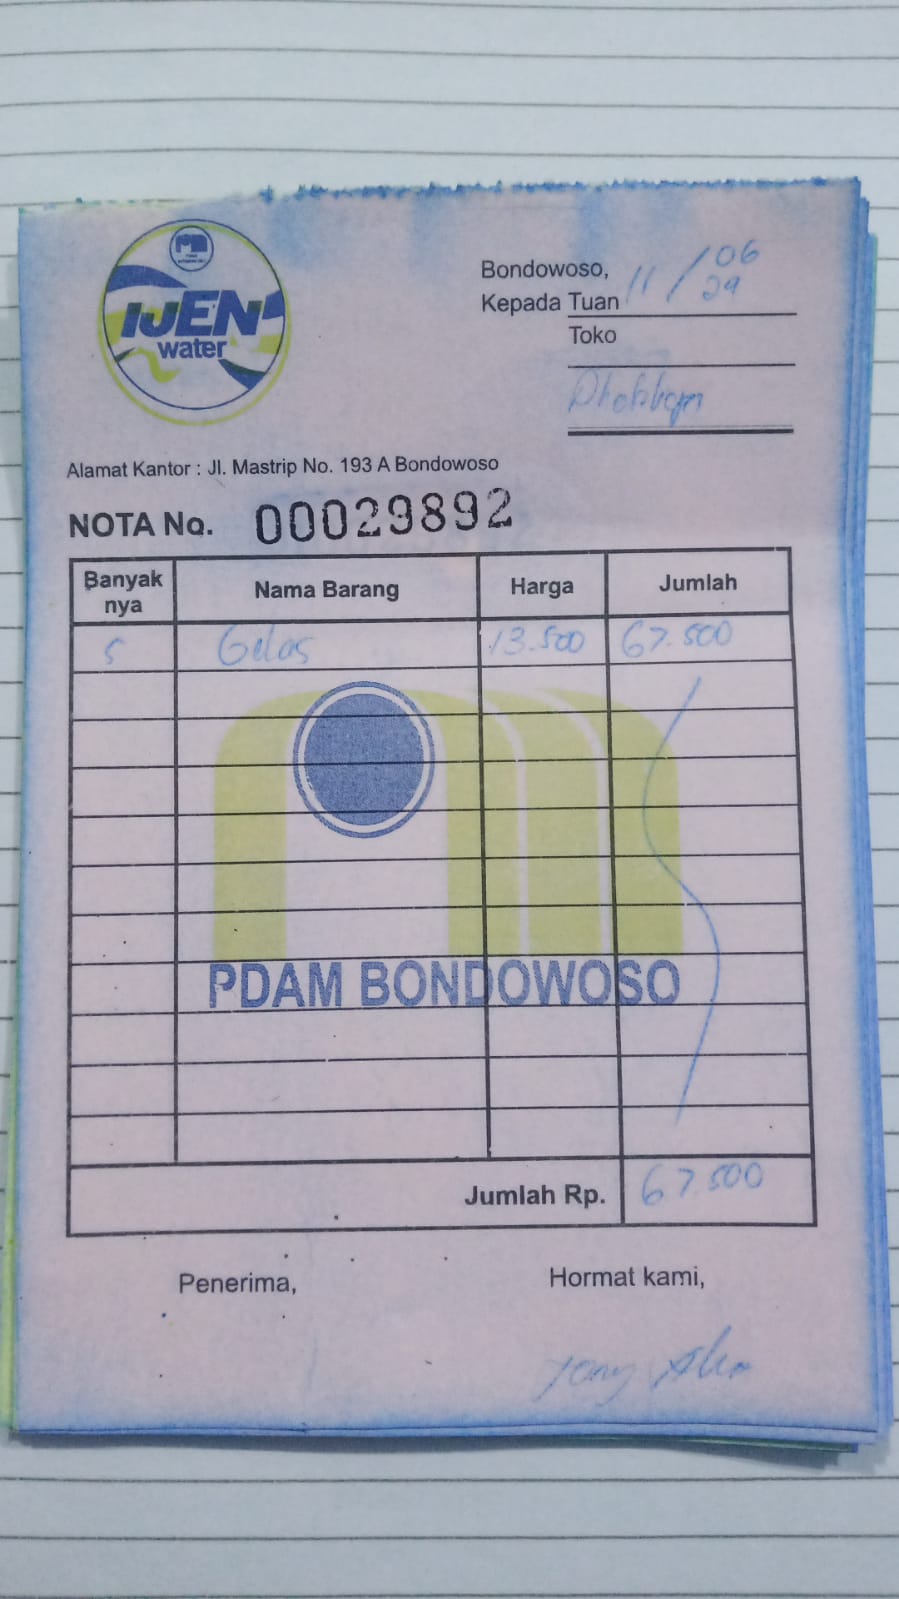 IJEN
water
Bondowoso, 11/06
Kepada Tuan 
Toko
Alamat Kantor : Jl. Mastrip No. 193 A Bondowoso
NOTA No. 00029892
Banyak nya Nama Barang Harga Jumlah
5 Gelas 13.500 67.500
PDAM BONDOWOSO
Jumlah Rp. 67.500
Penerima, Hormat kami,